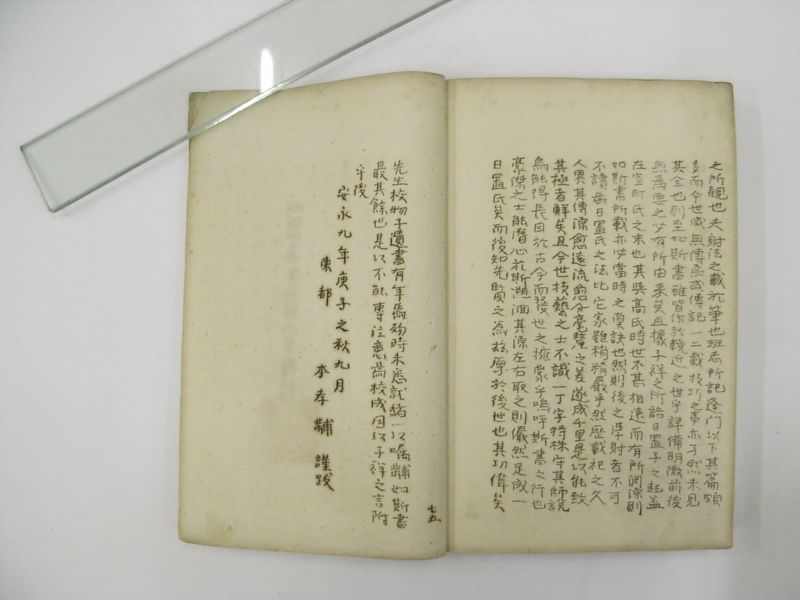 之所観也夫射法之載於筆也班志所記逢門以下其篇頗
多而今世咸無傳焉或傳記一二載技巧之事亦孑然未見
其全也則至如斯書雖皆作於輓近之世乎詳備明徴前後
無焉要之必有所由来矣且據子祥之所諳日置子之起蓋
在室町氏之末也其與高氏時世不甚相遠而有所淵源則
如斯書所載亦必當時之眞訣也然則後之学射者不可
不讀焉日置氏之法比它家雖稍稱嚴乎然歴載祀之久
人異其傳源愈遠流愈分毫釐之差遂成千里是以能致
其極者鮮矣且今世技藝之士不識一丁字特株守其師説
焉能得長目於古今而發世之擁蒙乎嗚呼斯書之行也
豪傑之士能潜心於斯溯洄其源左右取之則儼然足成一
日置氏矣而後知先賢之為放原於後世也其功偉矣
先生校物子遺書有年焉物時未悉就緒以嘱黼如斯書
最其餘也是以不能專注意焉校成因以子祥之言附
于後
安永九年庚子之秋九月
東都 本孝黼謹跋
七五